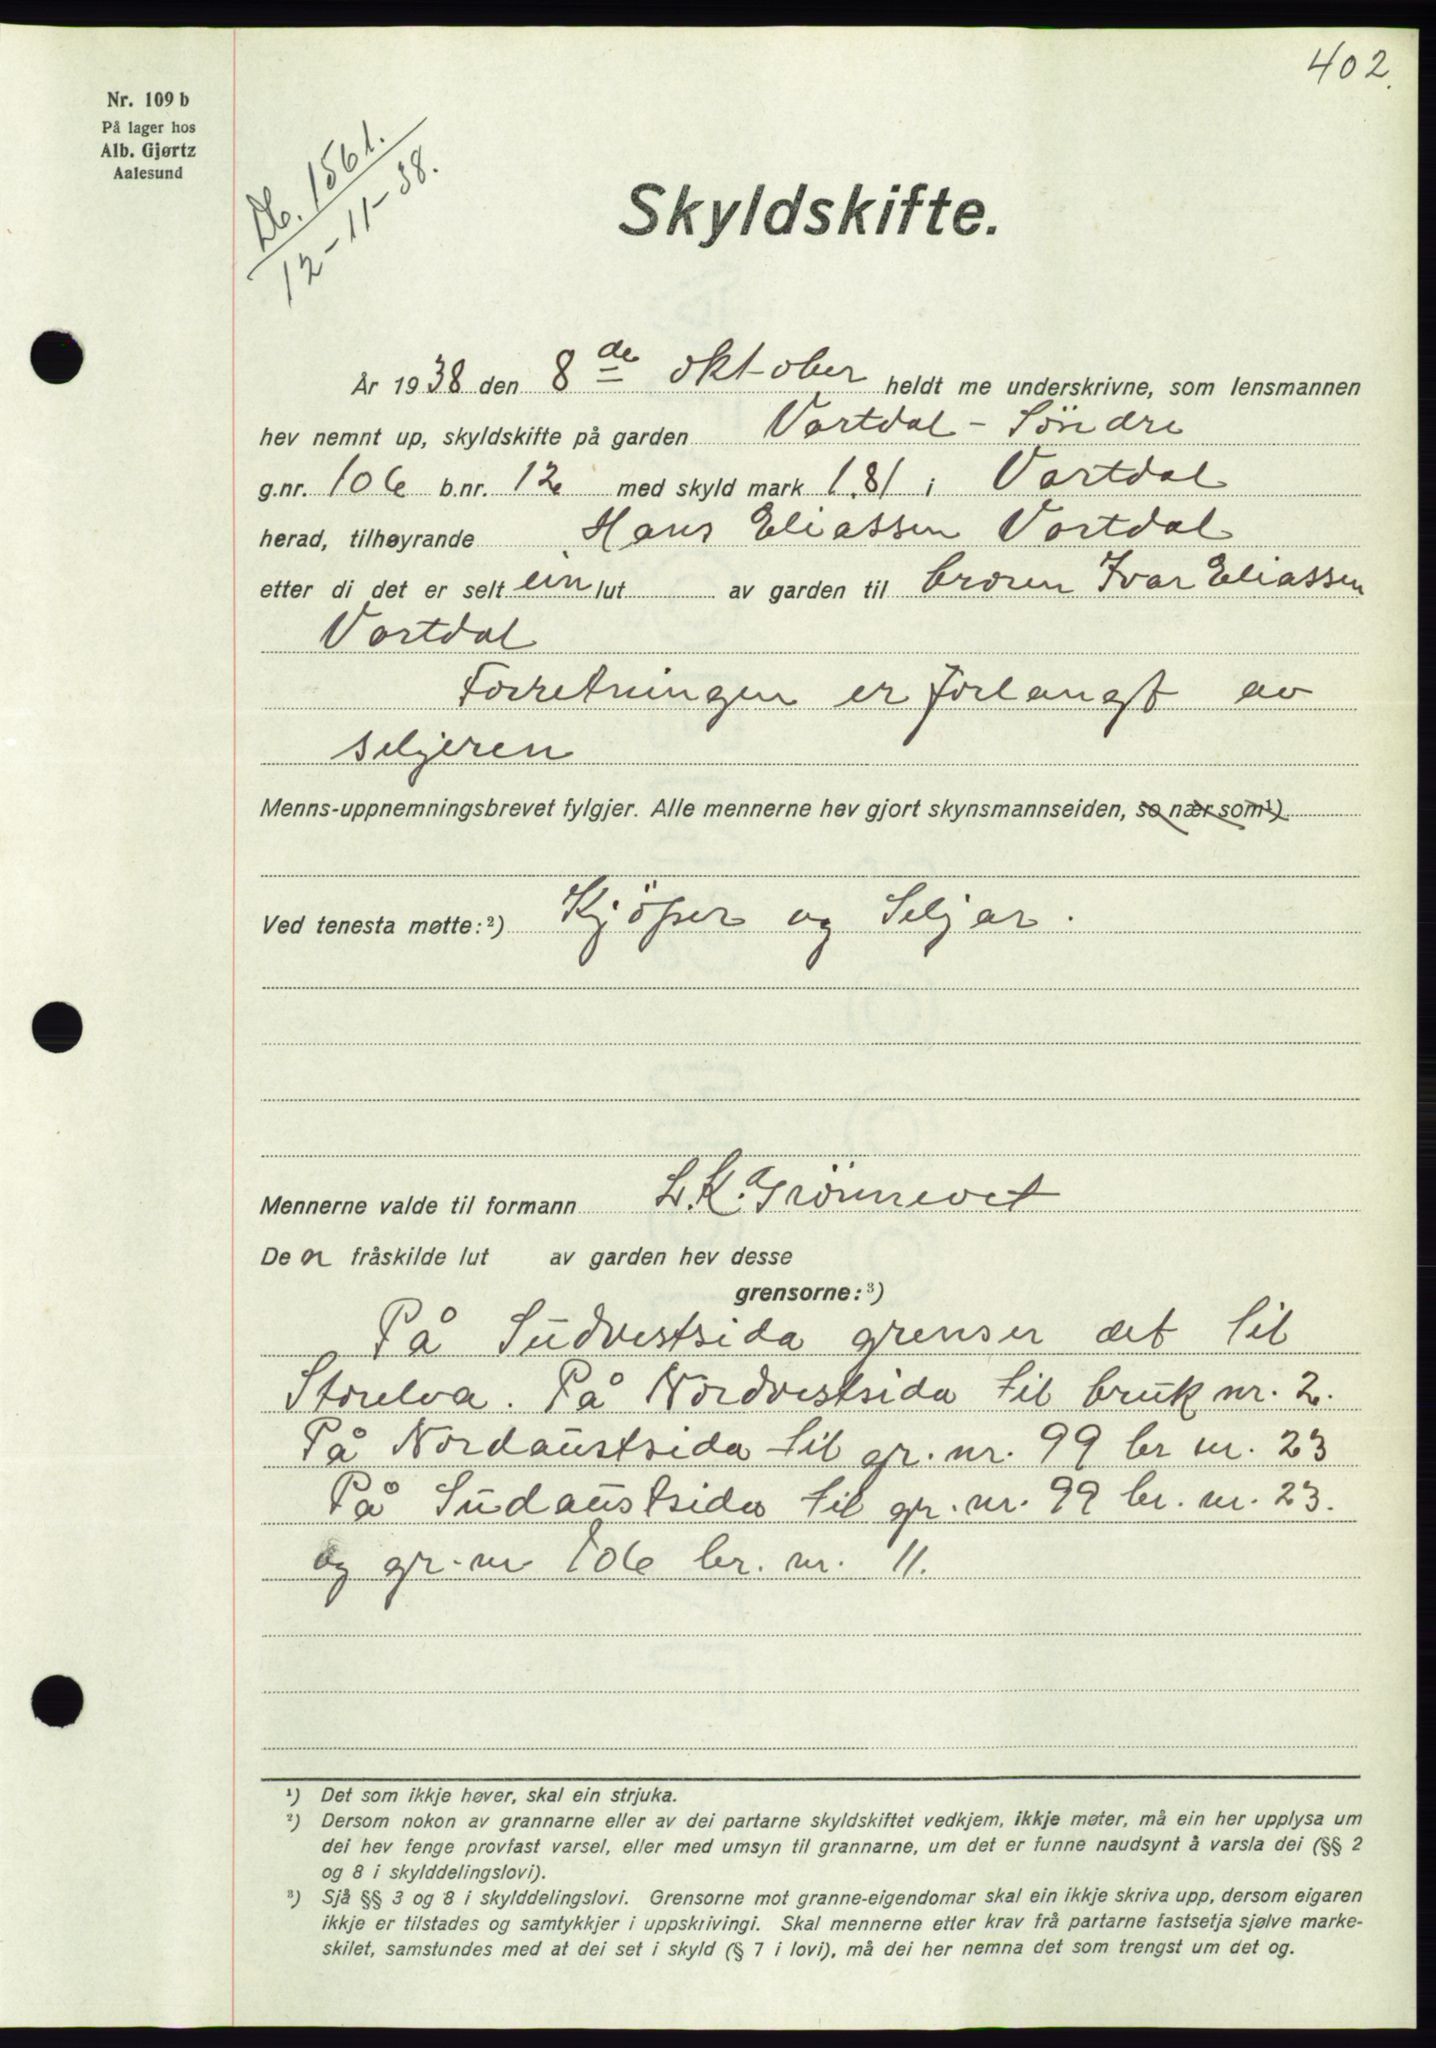 402.
Nr. 109 b
På lager hos
Alb. Gjørtz
Aalesund
Db. 1561.
12-11-38.
Skyldskifte.
År 1938 den 8de oktober heldt me underskrivne, som lensmannen
hev nemnt up, skyldskifte på garden Vartdal - Söndre
g.nr. 106 b.nr. 12 med skyld mark 1.81 i Vartdal
herad, tilhøyrande Hans Eliassen Vartdal
etter di det er selt ein lut av garden til broren Ivar Eliassen
Vartdal
Forretningen er forlangt av
seljeren
Menns-uppnemningsbrevet fylgjer. Alle mennerne hev gjort skynsmannseiden, so nær som¹)
Ved tenesta møtte:²) Kjöper og Seljar.
Mennerne valde til formann L. K. Grönnevet
De n fråskilde lut av garden hev desse
grensorne:³)
På Sudvestsida grenser det til
Storelva. På Nordvestsida til bruk nr. 2.
På Nordaustsida til gr. nr. 99 br nr. 23
På Sudaustsida til gr. nr. 99 br. nr. 23.
og gr. nr 106 br. nr. 11.
¹) Det som ikkje høver, skal ein strjuka.
²) Dersom nokon av grannarne eller av dei partarne skyldskiftet vedkjem, ikkje møter, må ein her upplysa um
dei hev fenge provfast varsel, eller med umsyn til grannarne, um det er funne naudsynt å varsla dei (§§ 2
og 8 i skylddelingslovi).
³) Sjå §§ 3 og 8 i skylddelingslovi. Grensorne mot granne-eigendomar skal ein ikkje skriva upp, dersom eigaren
ikkje er tilstades og samtykkjer i uppskrivingi. Skal mennerne etter krav frå partarne fastsetja sjølve marke-
skilet, samstundes med at dei set i skyld (§ 7 i lovi), må dei her nemna det som trengst um det og.